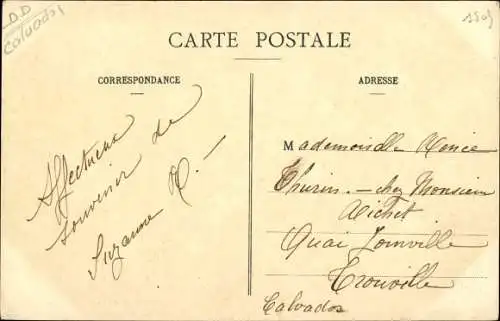 DD
Calvados
CARTE POSTALE
CORRESPONDANCE
ADRESSE
Affectueux
souvenir de
Suzanne R.
Mademoiselle
Thurin - chez Monsieur
Richet
Quai Joinville
Trouville
Calvados